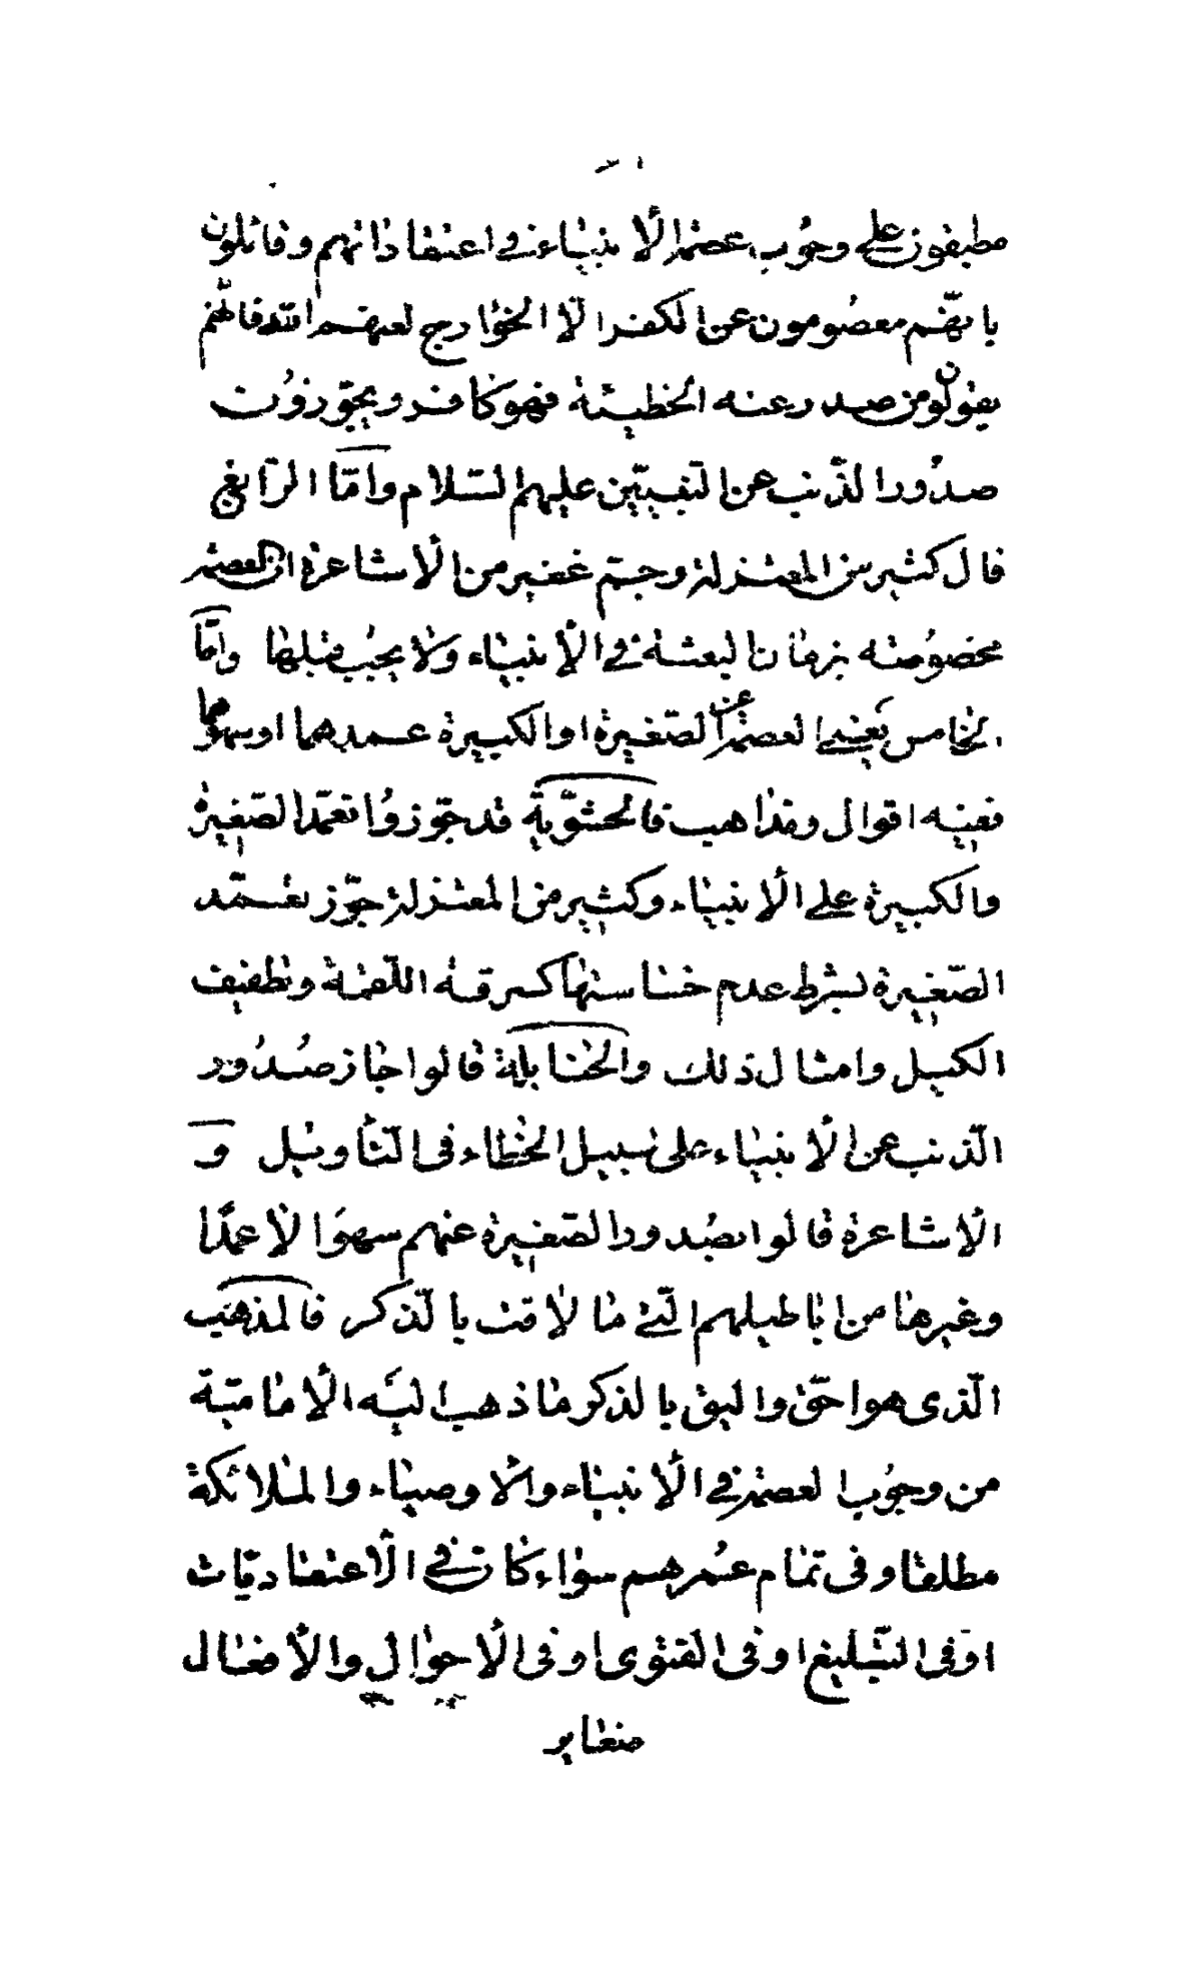 مطبقون على وجوب عصمة الأنبياء في اعتقاداتهم وقائلون
بانهم معصومون عن الكفر الا الخوارج لعنهم الله فانهم
يقولون من صدر عنه الخطيئة فهو كافر ويجوزون
صدور الذنب عن النبيين عليهم السلام وامّا الرّابع
قال كثير من المعتزلة وجمّ غفير من الأشاعرة ان العصمة
مخصوصة بزمان البعثة في الأنبياء ولا يجب قبلها وامّا
الخامس يعني العصمة عن الصّغيرة او الكبيرة عمدهما او سهوهما
ففيه اقوال ومذاهب فالحشويّة قد جوّزوا تعمّد الصّغيرة
والكبيرة على الأنبياء وكثير من المعتزلة جوّز تعمّد
الصّغيرة بشرط عدم خساستها كسرقة اللّقمة وتطفيف
الكيل وامثال ذلك والحنابلة قالوا جاز صدور
الذنب عن الأنبياء على سبيل الخطاء في التّأويل و
الأشاعرة قالوا بصدور الصّغيرة عنهم سهوا لا عمدًا
وغيرها من اباطيلهم الّتي ما لاقت بالذكر فالمذهب
الّذي هو احقّ واليق بالذكر ما ذهب اليه الأماميّة
من وجوب العصمة في الأنبياء والأوصياء والملائكة
مطلقا وفي تمام عمرهم سواء كان في الأعتقاديّات
او في التّبليغ او في الفتوى او في الأحوال والأفعال
صغاير